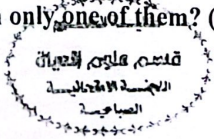 only one of them? (
قسم علوم الحياة
اللجنة الامتحانية
الصباحية